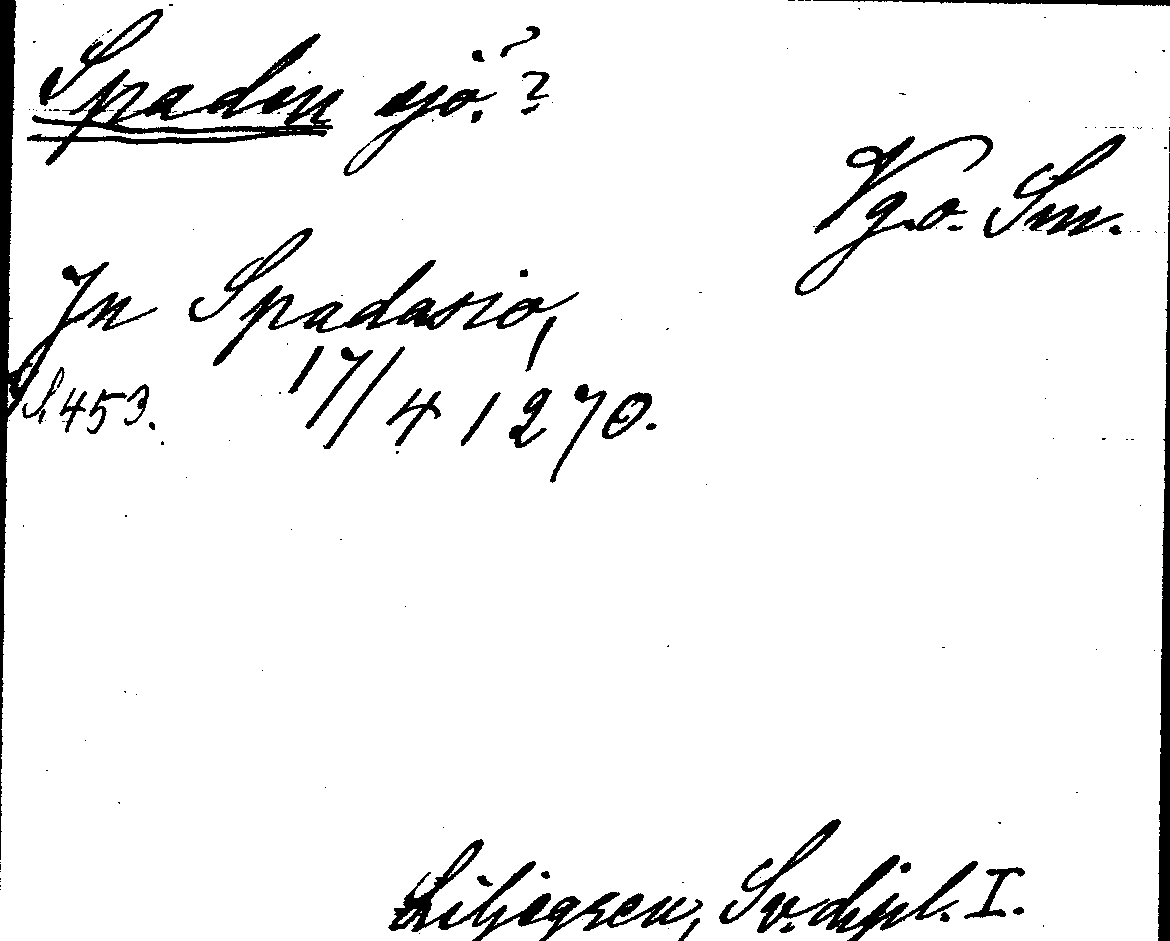 Spaden sjö. ??
Vg. o. Sm.
In Spadasio,
S. 453. 17/4 1270.
Liljegren, Sv. dipl. I.